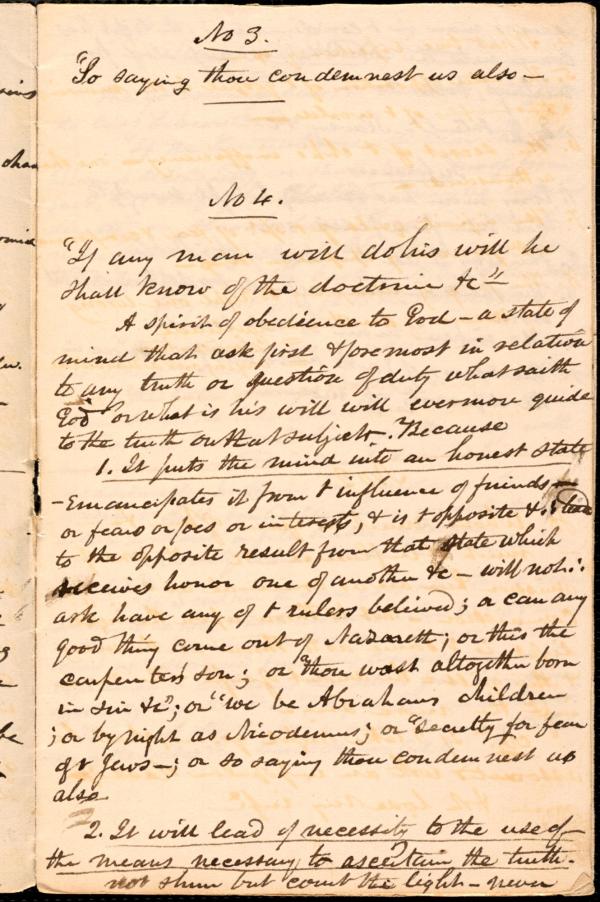 No 3.
"So saying thou condemnest us also —
No 4.
"If any man will do his will he
shall know of the doctrine &c"
A spirit of obedience to God — a state of
mind that ask first & foremost in relation
to any truth or question of duty what saith
God or what is his will will evermore guide
to the truth on that subject. Because
1. It puts the mind into an honest state
- Emancipates it from t influence of friends —
or fears or foes or interests, & is t opposite &
to the opposite result from that state which
receives honor one of another &c — will not
ask have any of t rulers believed; or can any
good thing come out of Nazareth; or this the
carpenters son; or "thou wast altogether born
in sin &c"; or "we be Abrahams children
; or by night as Nicodemus; or "secretly for fear
of t Jews —; or so saying thou condemnest us
also
2. It will lead of necessity to the use of
the means necessary to ascertain the truth.
not shun but court the light — never